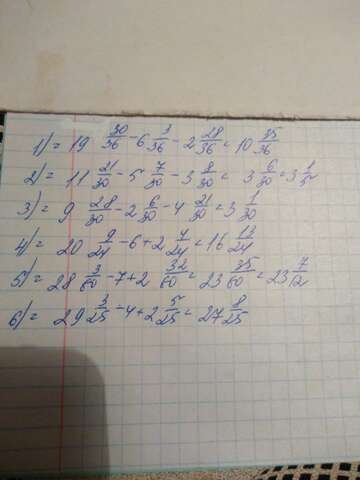 1) = 19 30/36 - 6 3/36 - 2 28/36 = 10 35/36
2) = 11 21/30 - 5 7/30 - 3 8/30 = 3 6/30 = 3 1/5
3) = 9 28/30 - 2 6/30 - 4 21/30 = 3 1/30
4) = 20 9/24 - 6 + 2 4/24 = 16 13/24
5) = 28 3/60 - 7 + 2 32/60 = 23 35/60 = 23 7/12
6) = 29 3/25 - 4 + 2 5/25 = 27 8/25